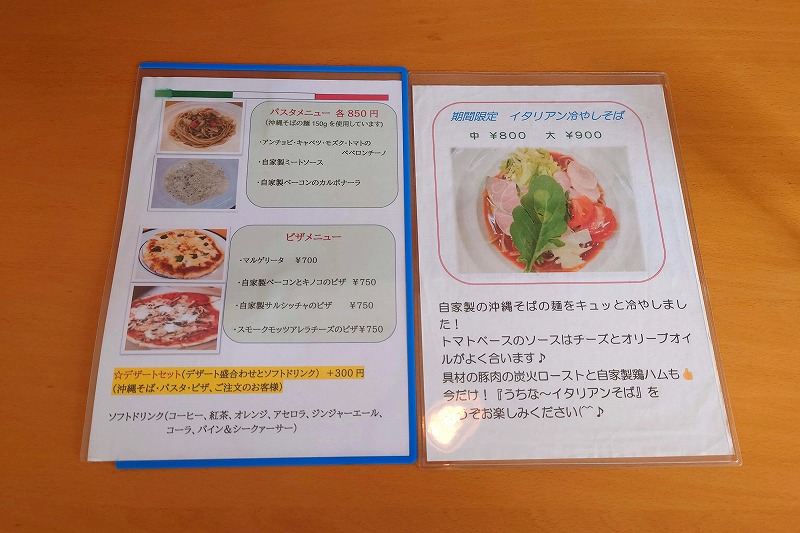 パスタメニュー 各850円
(沖縄そばの麺150gを使用しています)
・アンチョビ・キャベツ・モズク・トマトの
ペペロンチーノ
・自家製ミートソース
・自家製ベーコンのカルボナーラ
ピザメニュー
・マルゲリータ ¥700
・自家製ベーコンとキノコのピザ ¥750
・自家製サルシッチャのピザ ¥750
・スモークモッツアレラチーズのピザ¥750
☆デザートセット(デザート盛合わせとソフトドリンク) +300円
(沖縄そば・パスタ・ピザ、ご注文のお客様)
ソフトドリンク(コーヒー、紅茶、オレンジ、アセロラ、ジンジャーエール、
コーラ、パイン&シークァーサー)
期間限定 イタリアン冷やしそば
中 ¥800 大 ¥900
自家製の沖縄そばの麺をキュッと冷やしまし
た!
トマトベースのソースはチーズとオリーブオイ
ルがよく合います♪
具材の豚肉の炭火ローストと自家製鶏ハムも👍
今だけ!『うちな~イタリアンそば』を
うぞお楽しみください(^^♪